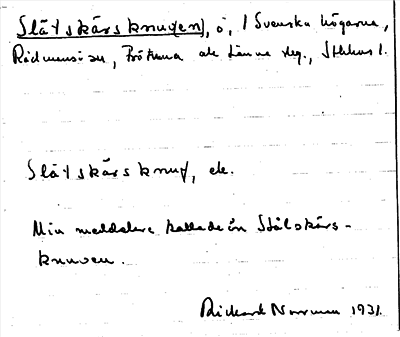 Slätskärsknu(en), ö, i Svenska högarna,
Rådmansö sn, Frötuna och Länna skg., Sthlms l.
Slätskärsknuv, ek.
Min meddelare kallade ön Stålskärs-
knuven.
Rickard Norrman 1931.